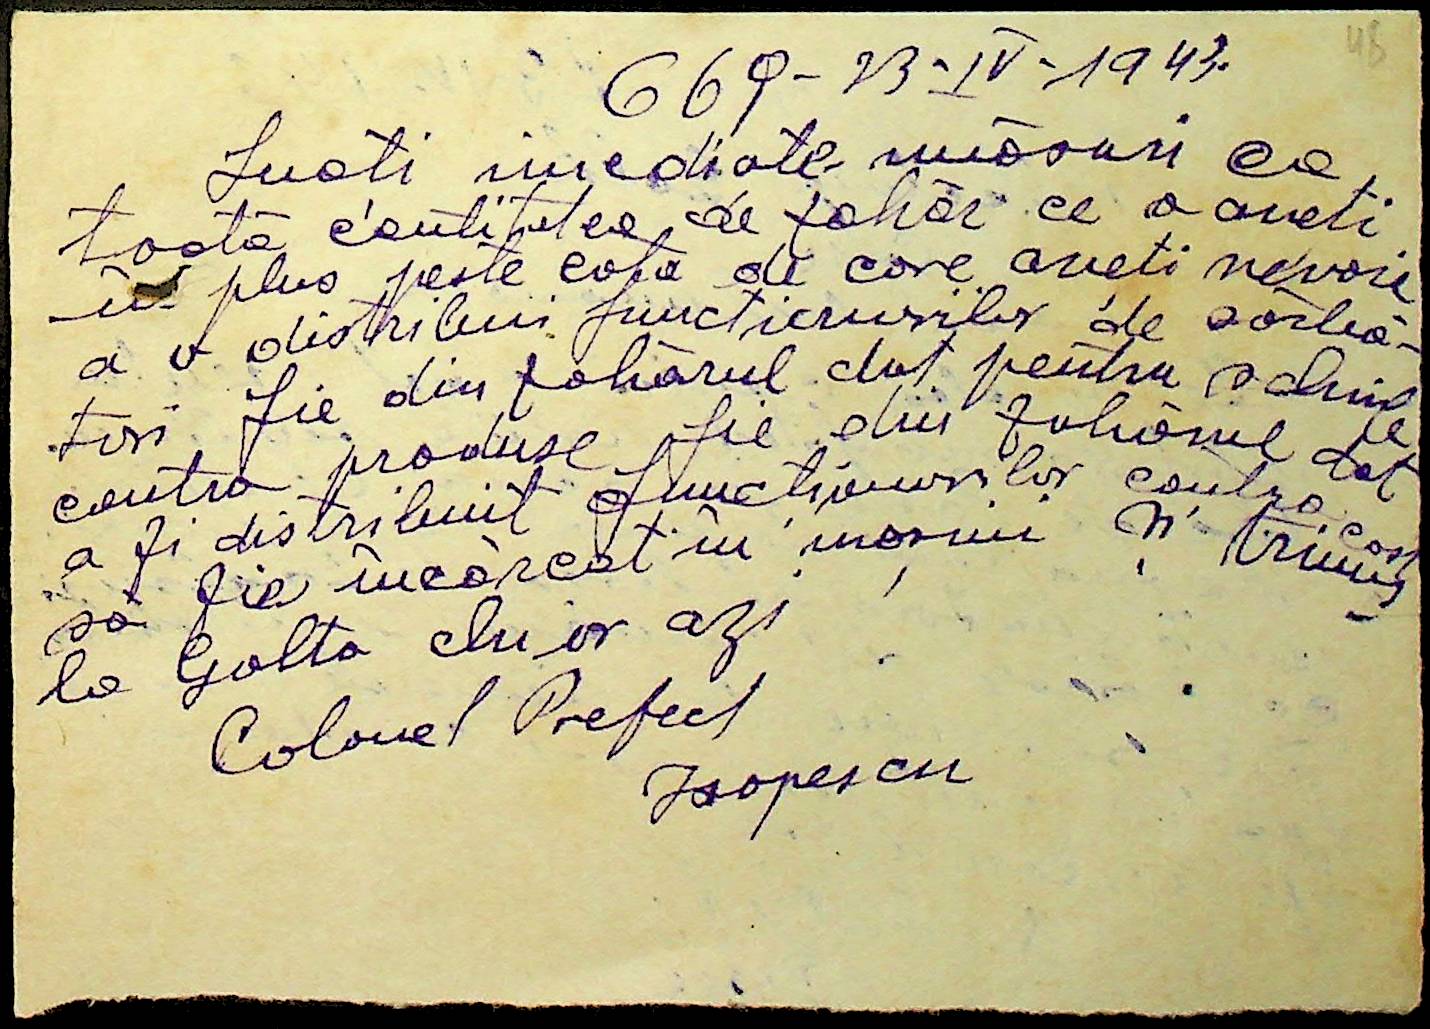 48
669 - 23 - IV - 1943.
Luati imediate măsuri ca
toată cantitatea de zahăr ce o aveti
în plus peste cota de care aveti nevoie
a o distribui functionarilor de sărbă-
tori fie din zahărul dat pentru schimb
contra produse fie din zahărul dat
a fi distribuit functionarilor contra cost
să fie încărcat în masini si trimis
la Golta chior azi
Colonel Prefect
Isopescu